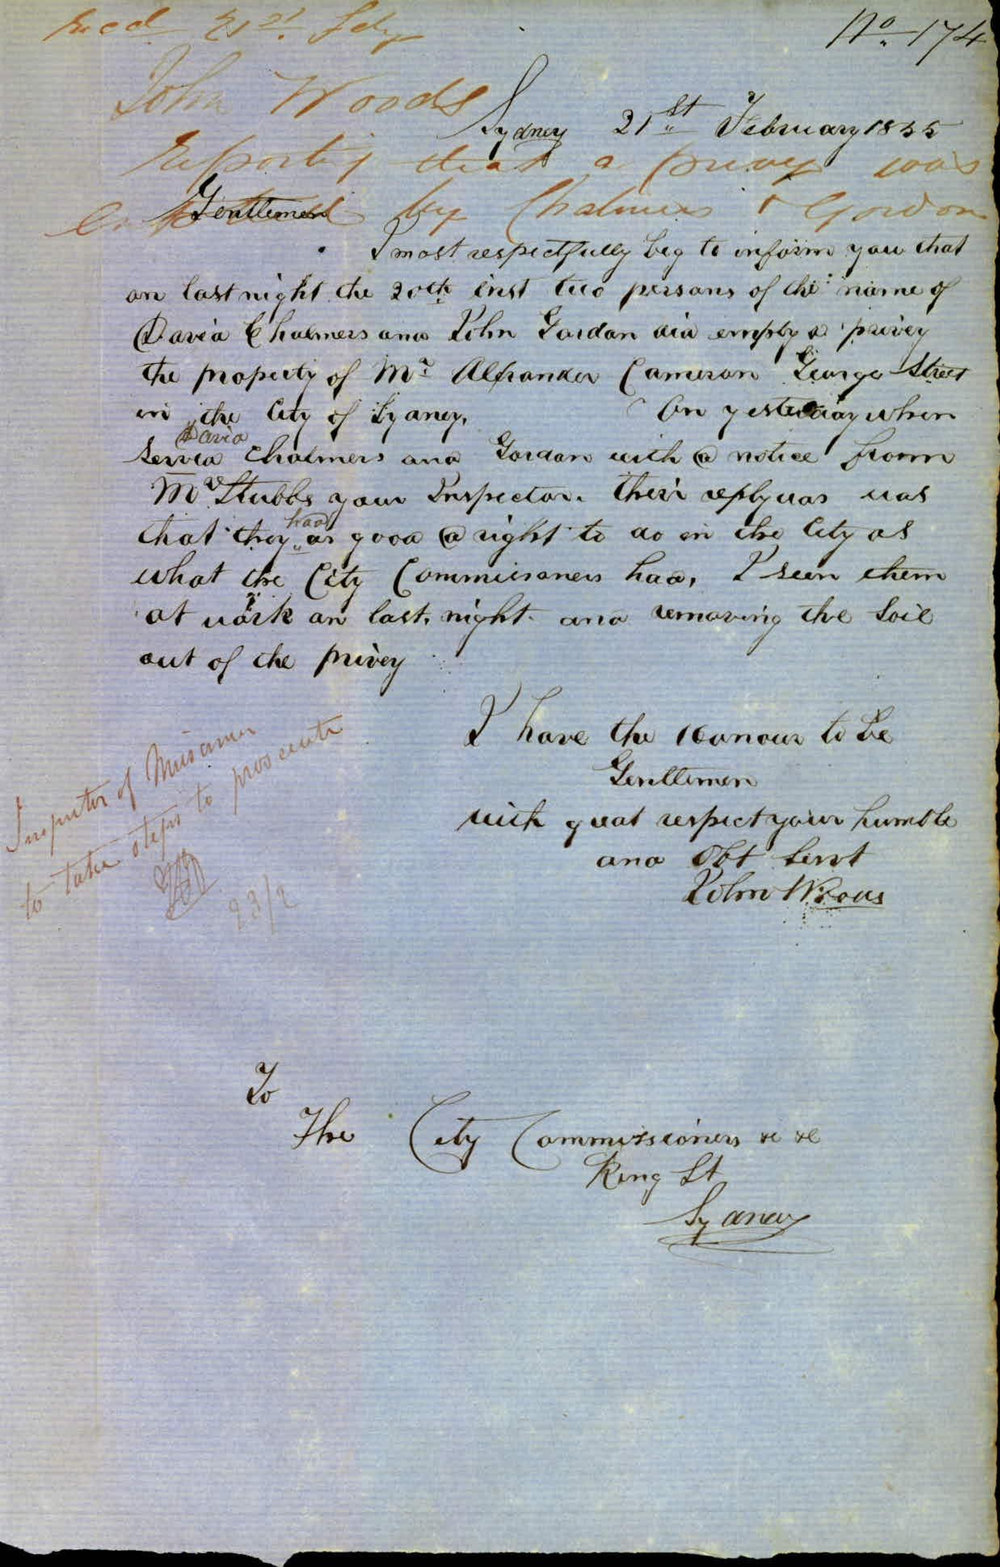 Recd 21st Feby
No. 174
John Woods
Sydney 21st February 1855
Reporting that a privy was
by Chalmers & Gordon
Gentlemen
I most respectfully beg to inform you that
on last night the 20th inst two persons of the name of
David Chalmers and John Gordon did empty a privey
the property of Mr Alexander Cameron George Street
in the City of Sydney. On yesterday when
David
served Chalmers and Gordon with a notice from
Mr Stubbs your Inspector. their reply was was
had
that they as good a right to do in the City as
what the City Commissioners had, I seen them
at work on last night and removing the soil
out of the privey
I have the Honour to be
Gentlemen
with great respect your humble
and Obt Servt
John Woods
Inspector of Nuisances
to take steps to prosecute
23/2
To
The City Commissioners &c &c
King St
Sydney